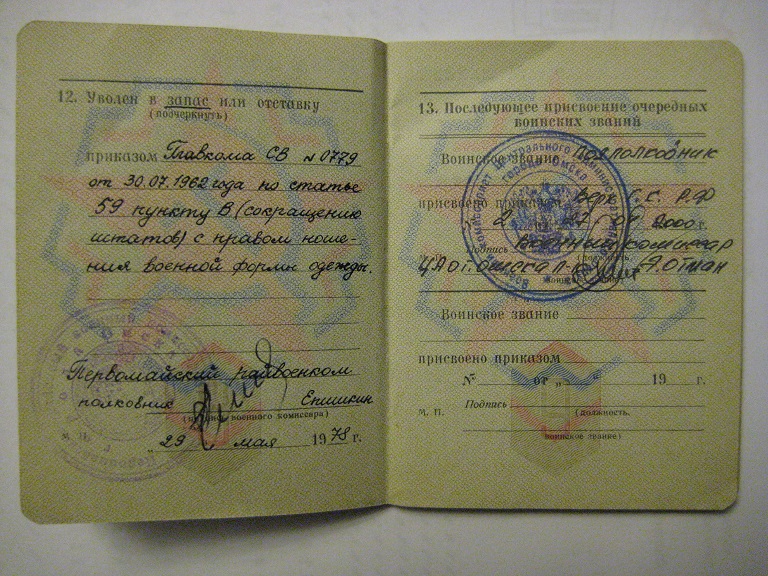 12. Уволен в запас или отставку
(подчеркнуть)
приказом Главкома СВ №0779
от 30.07.1962 года по статье
59 пункту В (сокращению
штатов) с правом ноше-
ния военной формы одежды.
Первомайский райвоенком
полковник Епишкин
(подпись военного комиссара)
М. П. „29 мая 1978 г.
13. Последующее присвоение очередных
воинских званий
Воинское звание Подполковник
присвоено приказом Верх Г.К. РФ
2000 г.
Военный комиссар
(должность,
ЦАО г. Омска п-к Я. Отман
воинское звание)
Воинское звание
присвоено приказом
№ от „ “ 19 г.
Подпись
М. П. (должность,
воинское звание)